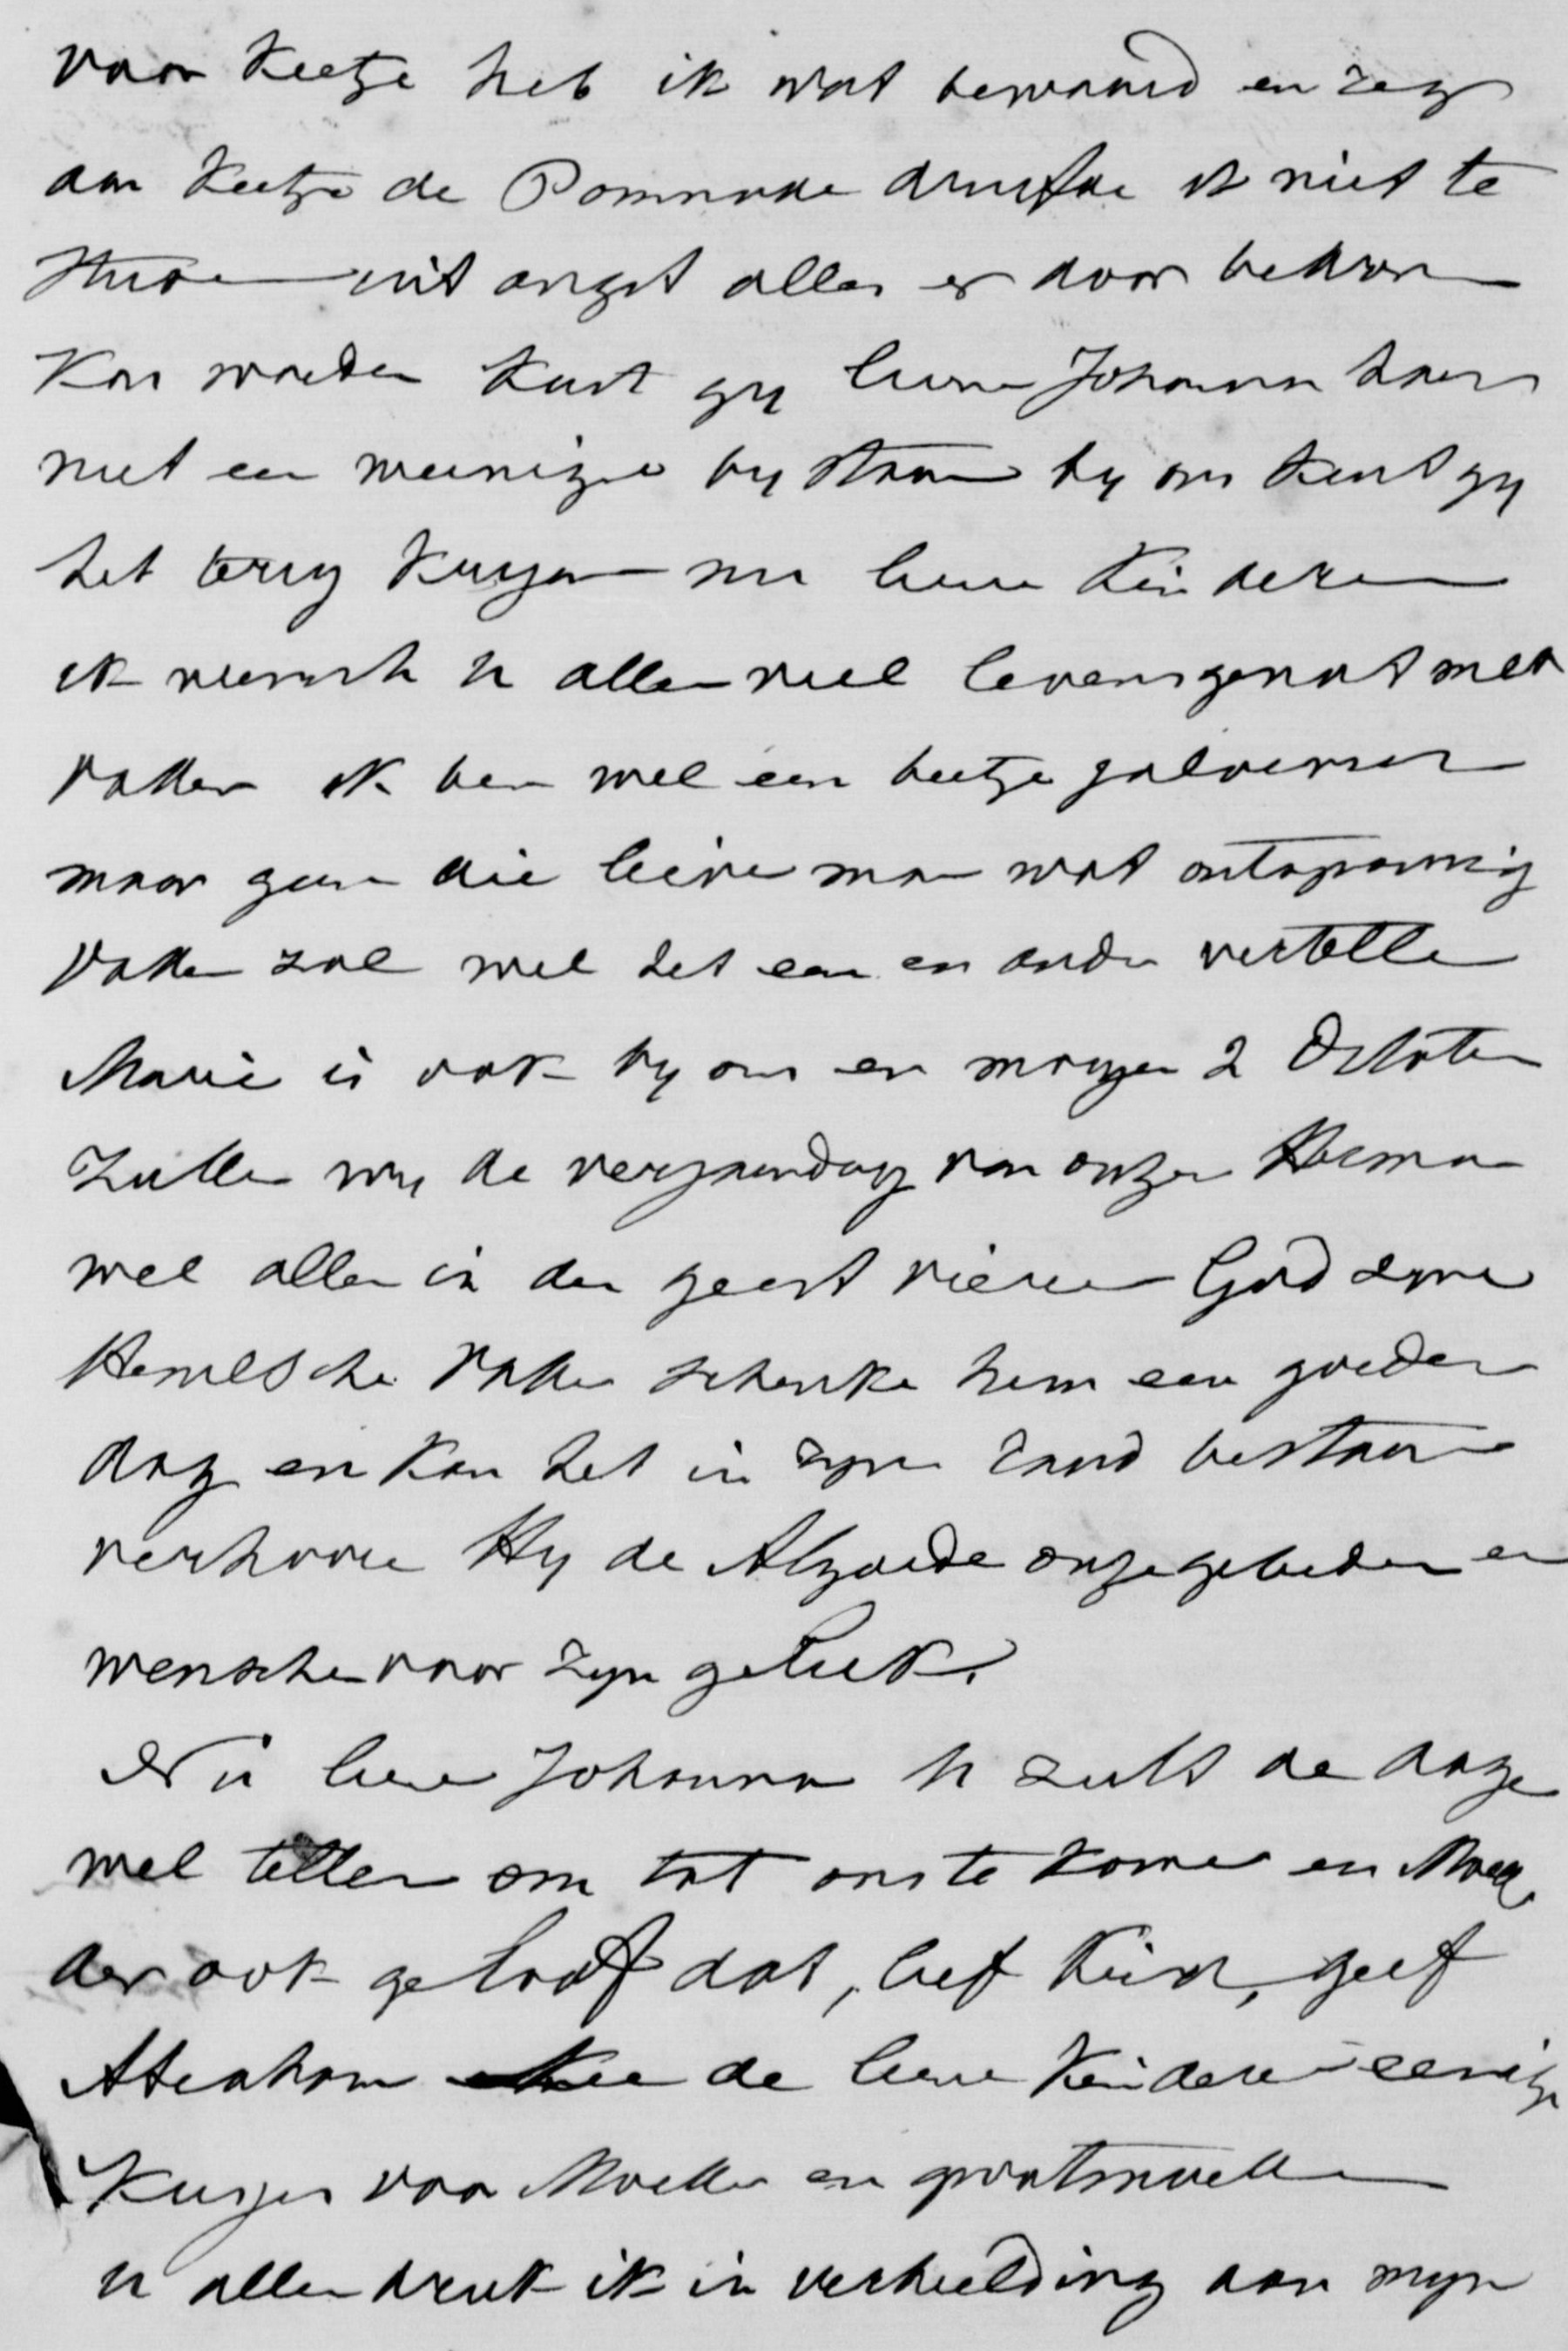 voor Keetje heb ik wat bewaard en zeg
aan Keetje de Pommade durfde ik niet te
sturen uit angst alles er door bedorven
kon worden kunt gy lieve Johanna haar
niet een weinigje by staan by ons kunt gy
het terug krygen nu lieve Kinderen
ik wensch u allen veel levensgenot met
Vader ik ben wel een beetje jaloersch
maar gun die lieve man wat ontspanning
Vader zal wel het een en ander vertellen
Marie is ook by ons en morgen 2 October
Zullen wy de verjaardag van onze Herman
wel allen in den geest vieren God zyne
Hemelsche Vader schenke hem een goeden
dag en kan het in zyn raad bestaan
verhoore Hy de Algoede onze gebeden en
wenschen voor zyn geluk.
Nu lieve Johanna U zult de dagen
wel tellen om tot ons te komen en Moe
der ook geloof dat, lief Kind, geef
Abraham de lieve Kinderen eenige
Kusjes van Moeder en grootmoeder
U allen druk ik in verbeelding aan myn